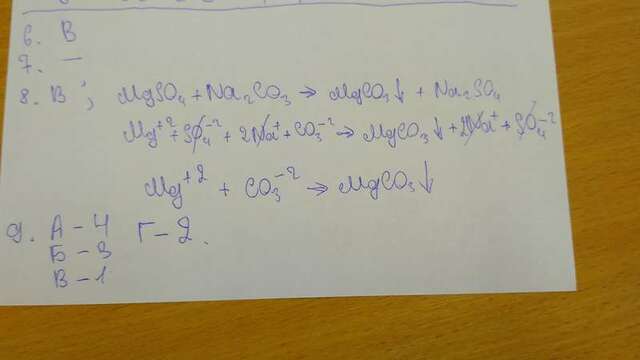 6. В
7. —
8. В; MgSO₄ + Na₂CO₃ → MgCO₃↓ + Na₂SO₄
Mg⁺² + SO₄⁻² + 2Na⁺ + CO₃⁻² → MgCO₃↓ + 2Na⁺ + SO₄⁻²
Mg⁺² + CO₃⁻² → MgCO₃↓
9. А – 4 Г – 2.
Б – 3
В – 1